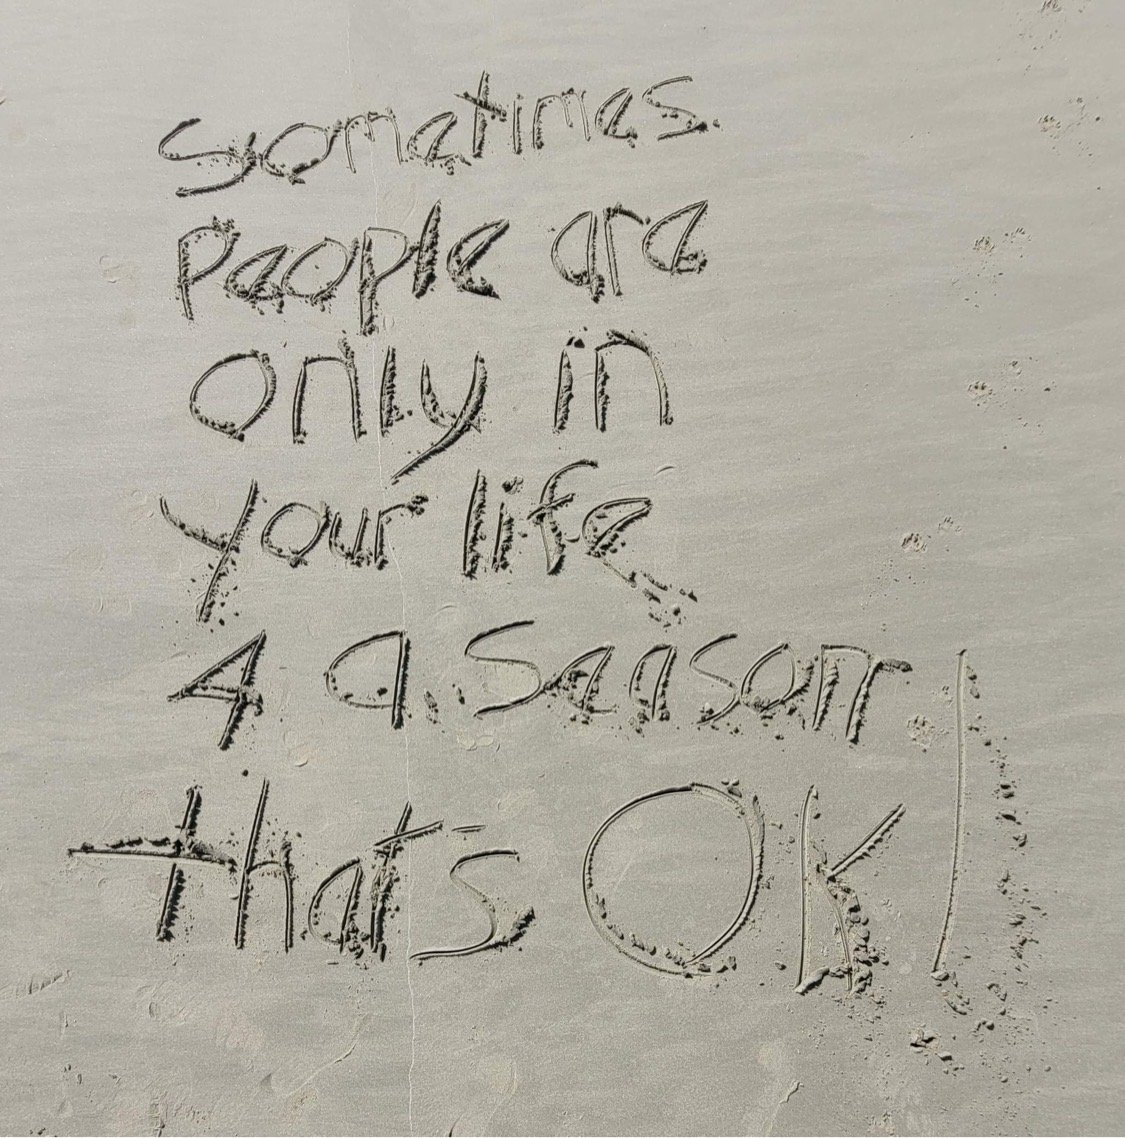 sometimes
people are
only in
your life
4 a season
that's OK!